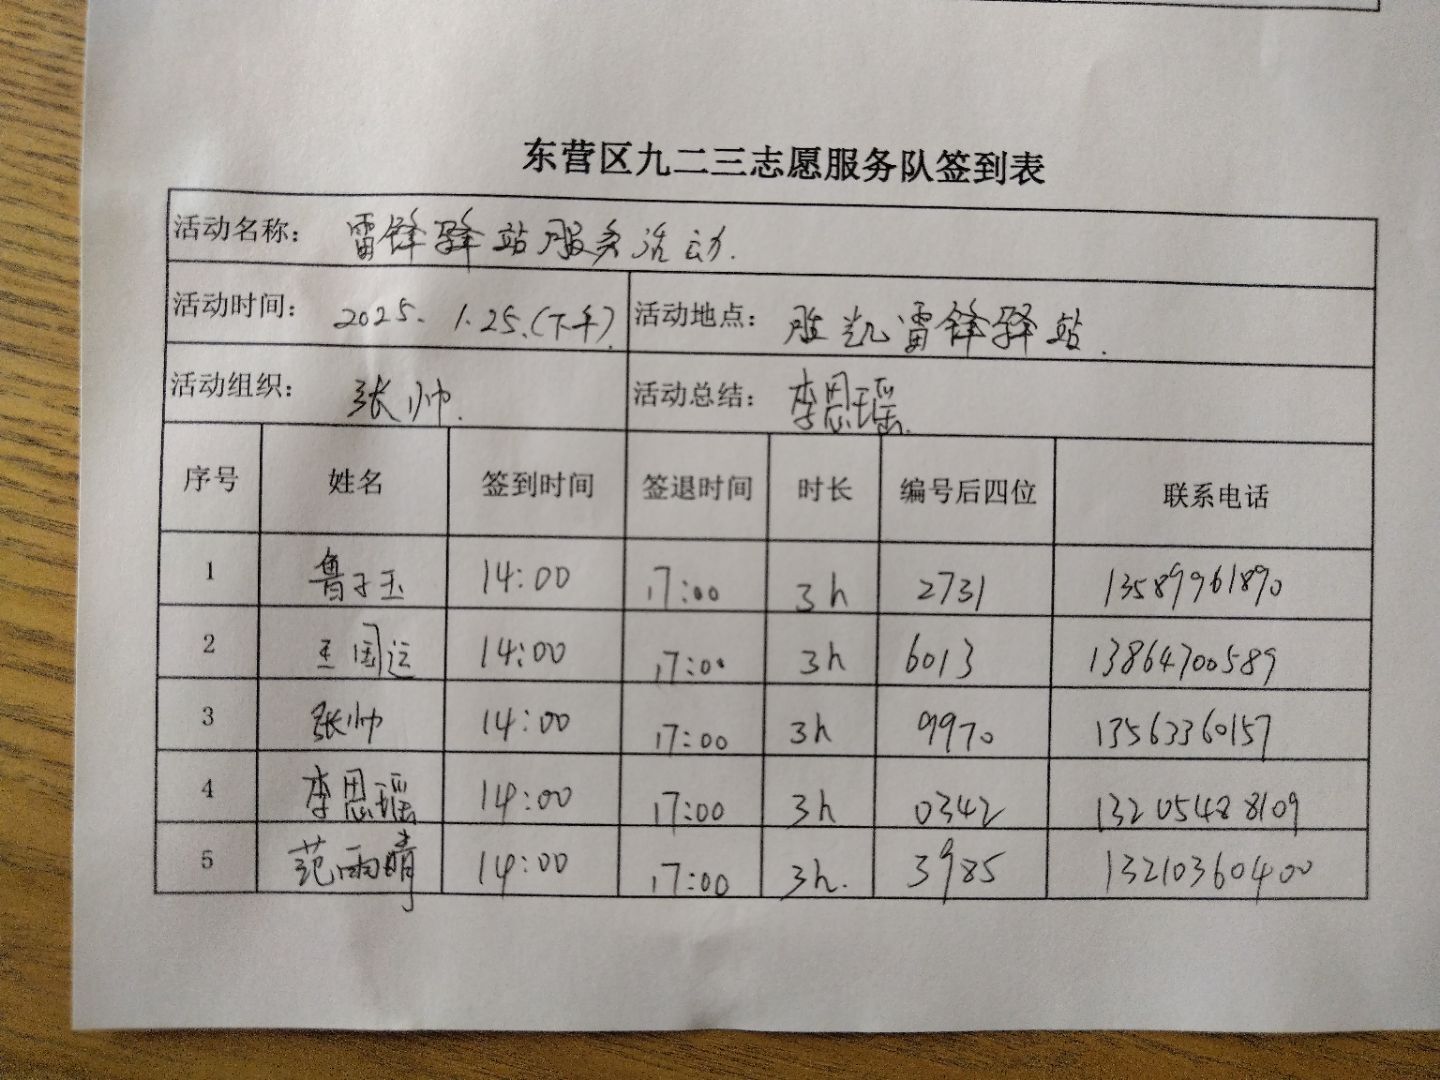 东营区九二三志愿服务队签到表
活动名称： 雷锋驿站服务活动.
活动时间： 2025. 1.25.(下午). 活动地点： 胜凯雷锋驿站.
活动组织： 张帅. 活动总结： 李思瑶.
序号 姓名 签到时间 签退时间 时长 编号后四位 联系电话
1 鲁子玉 14:00 17:00 3h 2731 13589961890
2 王国运 14:00 17:00 3h 6013 13864700589
3 张帅 14:00 17:00 3h 9970 13563360157
4 李思瑶 14:00 17:00 3h 0342 13205488109
5 范雨晴 14:00 17:00 3h. 3985 13210360400